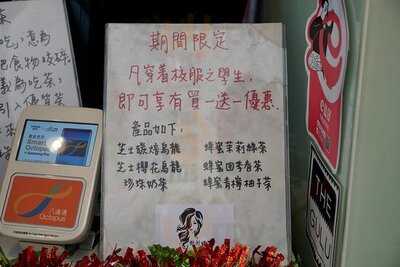 吃,意為
義為吃茶,
期間限定
凡穿着校服之學生,
即可享有買一送一優惠.
產品如下:
芝士碳焙烏龍
芝士櫻花烏龍
珍珠奶茶
蜂蜜茉莉綠茶
蜂蜜四季春茶
蜂蜜青檸柚子茶
Smart
Octopus
八達通
Octopus
THE
GULU